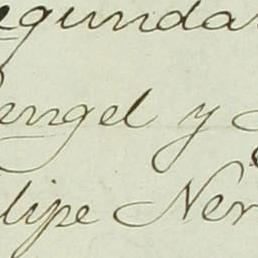 egundar
engel y
lipe Ner